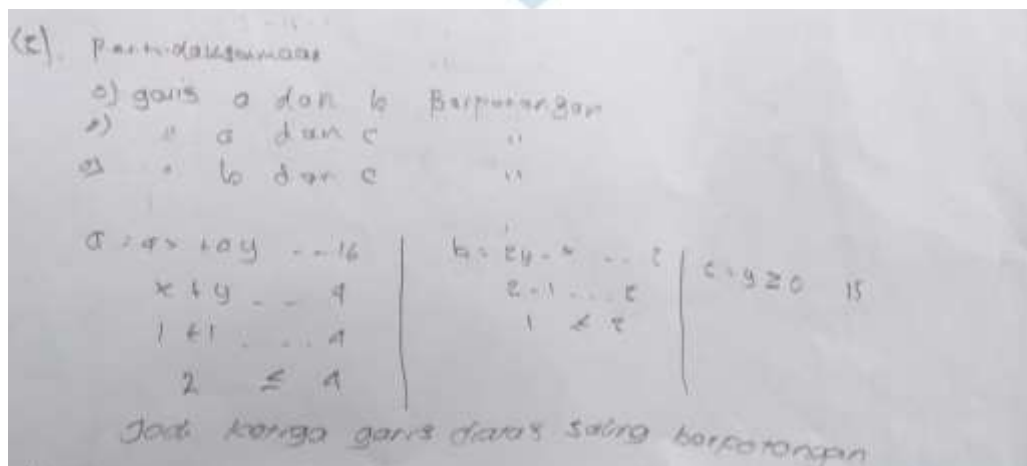 (2). Pertidaksamaan
o) garis a dan b Berpotongan
o) " a dan c "
o) " b dan c "
a = 4x + 4y ... 16
x + y ... 4
1 + 1 ... 4
2 ≤ 4
b = 2y - x ... 2
2 - 1 ... 2
1 ≤ 2
c = y ≥ 0 15
Jadi ketiga garis diatas saling berpotongan